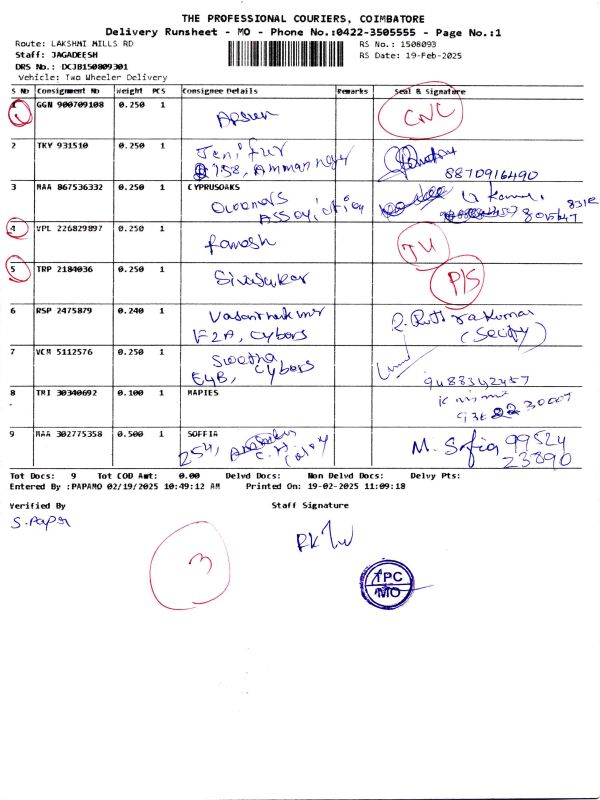 THE PROFESSIONAL COURIERS, COIMBATORE
Delivery Runsheet - MO - Phone No.:0422-3505555 - Page No.:1
Route: LAKSHMI MILLS RD RS No.: 1508093
Staff: JAGADEESH RS Date: 19-Feb-2025
DRS No.: DCJB150809301
Vehicle: Two Wheeler Delivery
S No Consignment No Weight PCS Consignee Details Remarks Seal & Signature
1 GGN 900709108 0.250 1 CNC
2 TKY 931510 0.250 1 Jenifur
158, Amman nagar
8870916490
3 MAA 867536332 0.250 1 CYPRUSOAKS
Owners
4 VPL 226829897 0.250 1 Ramesh
5 TRP 2184036 0.250 1 Sivasukar P/S
6 RSP 2475879 0.240 1 Vasanthakumar
F2A, Cybors
7 VCM 5112576 0.250 1 Swetha
E4B, Cybors
9488342457
8 TMI 30340692 0.100 1 MAPIES
9 MAA 302775358 0.500 1 SOFFIA
254,
M. Sofia 99524
23890
Tot Docs: 9 Tot COD Amt: 0.00 Delvd Docs: Non Delvd Docs: Delvy Pts:
Entered By :PAPAMO 02/19/2025 10:49:12 AM Printed On: 19-02-2025 11:09:18
Verified By Staff Signature
3
TPC
MO